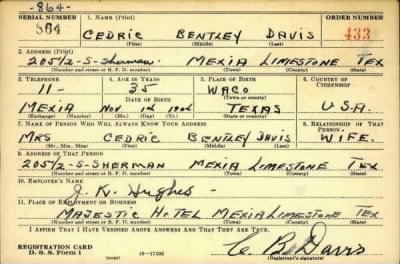 -864-
SERIAL NUMBER 1. NAME (Print) ORDER NUMBER
864 CEDRIC BENTLEY DAVIS 433
(First) (Middle) (Last)
2. ADDRESS (Print)
205½-S-Sherman MEXIA LIMESTONE TEX
(Number and street or R. F. D. number) (Town) (County) (State)
3. TELEPHONE 4. AGE IN YEARS 5. PLACE OF BIRTH 6. COUNTRY OF CITIZENSHIP
11- 35 WACO
DATE OF BIRTH (Town or county)
MEXIA Nov 1st 1904 TEXAS U.S.A.
(Exchange) (Number) (Mo.) (Day) (Yr.) (State or country)
7. NAME OF PERSON WHO WILL ALWAYS KNOW YOUR ADDRESS 8. RELATIONSHIP OF THAT PERSON
MRS CEDRIC BENTLEY DAVIS WIFE.
(Mr., Mrs., Miss) (First) (Middle) (Last)
9. ADDRESS OF THAT PERSON
205½-S-SHERMAN MEXIA LIMESTONE TEX
(Number and street or R. F. D. number) (Town) (County) (State)
10. EMPLOYER'S NAME
J. K. Hughes-
11. PLACE OF EMPLOYMENT OR BUSINESS
MAJESTIC HOTEL MEXIA LIMESTONE TEX
(Number and street or R. F. D. number) (Town) (County) (State)
I AFFIRM THAT I HAVE VERIFIED ABOVE ANSWERS AND THAT THEY ARE TRUE.
REGISTRATION CARD
D. S. S. Form 1 16-17105 C B Davis
(Registrant's signature)